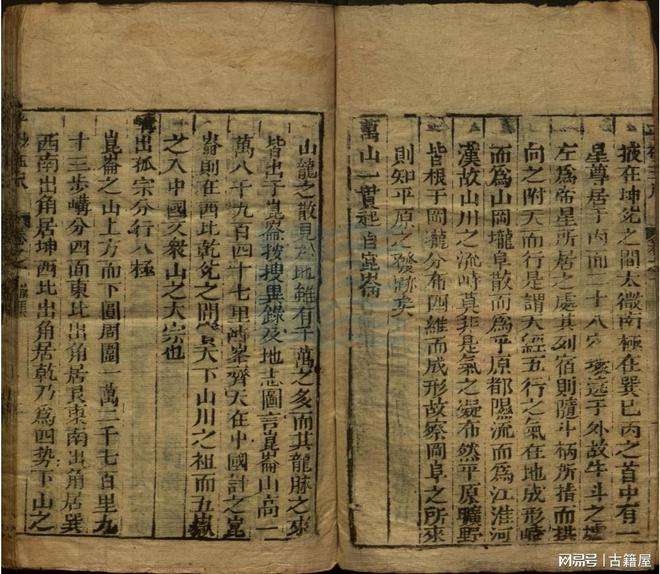 掖在坤兊之間太微南極在巽巳丙之首中有一
星尊居于内而二十八宿環遶于外故牛斗之墟
左爲帝星所居之處其列宿則隨斗柄所指而拱
向之附天而行是謂天經五行之氣在地成形峙
而爲山岡壠阜散而爲平原都隰流而爲江淮河
漢故山川之流峙莫非是氣之凝布然平原曠野
皆根于岡龍分布四維而成形故察岡阜之所來
則知平原之發跡矣
萬山一貫起自崑崙
山龍之散見於地雖有千萬之多而其龍脉之來
皆出于崑崙按搜異錄及地志圖言崑崙山高一
萬八千九百四十七里峙峯齊天在中國計之崑
崙則在西北乾兊之間實天下山川之祖而五嶽
之入中國又衆山之大宗也
出孤宗分行八極
崑崙之山上方而下圓周圍一萬二千七百里九
十三步嶙分四面東北出角居艮東南出角居巽
西南出角居坤西北出角居乾乃爲四勢下山之
网易号 | 古籍屋